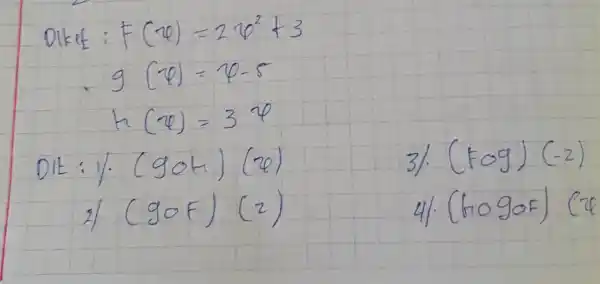 Diket : F (x) = 2x² + 3
g (x) = x - 5
h (x) = 3x
Dit : 1/. (goh) (x)
2/ (goF) (2)
3/. (Fog) (-2)
4/. (hogoF) (x